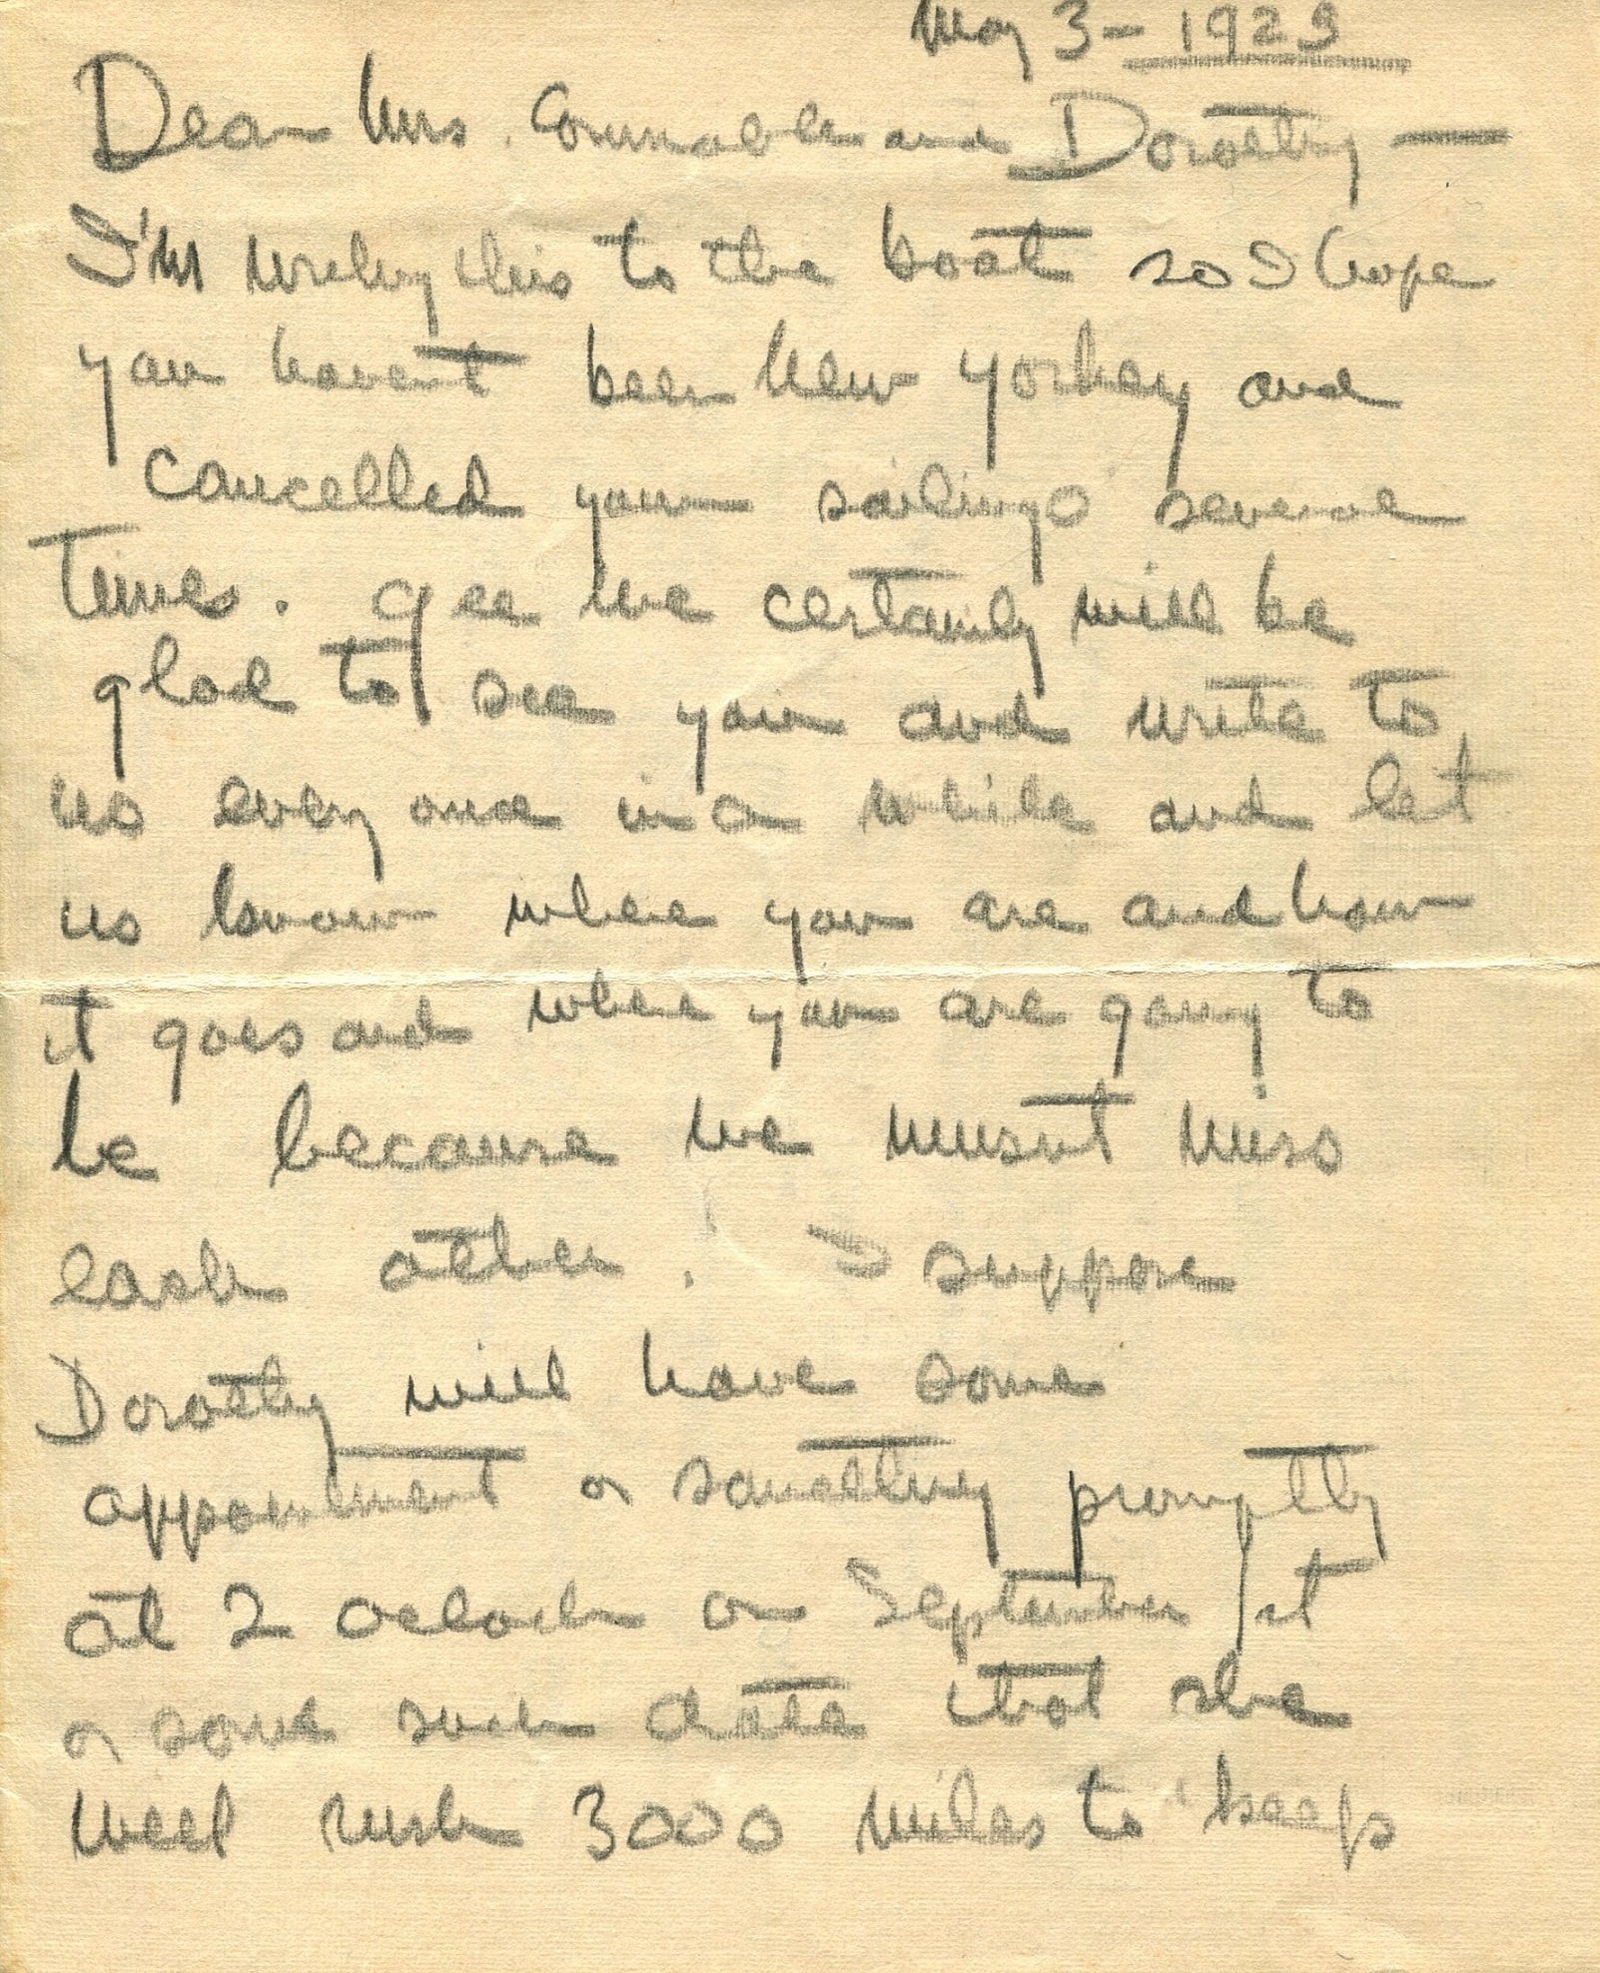 May 3 - 1923
Dear Mrs. Connable and Dorothy —
I'm writing this to the boat so I hope
you havent been New Yorkey and
cancelled your sailings several
times. Gee we certainly will be
glad to see you and write to
us every once in a while and let
us know where you are and how
it goes and where you are going to
be because we musnt miss
each other. I suppose
Dorothy will have some
appointment or something promptly
at 2 oclock on September 1st
or some such date that she
will rush 3000 miles to keep